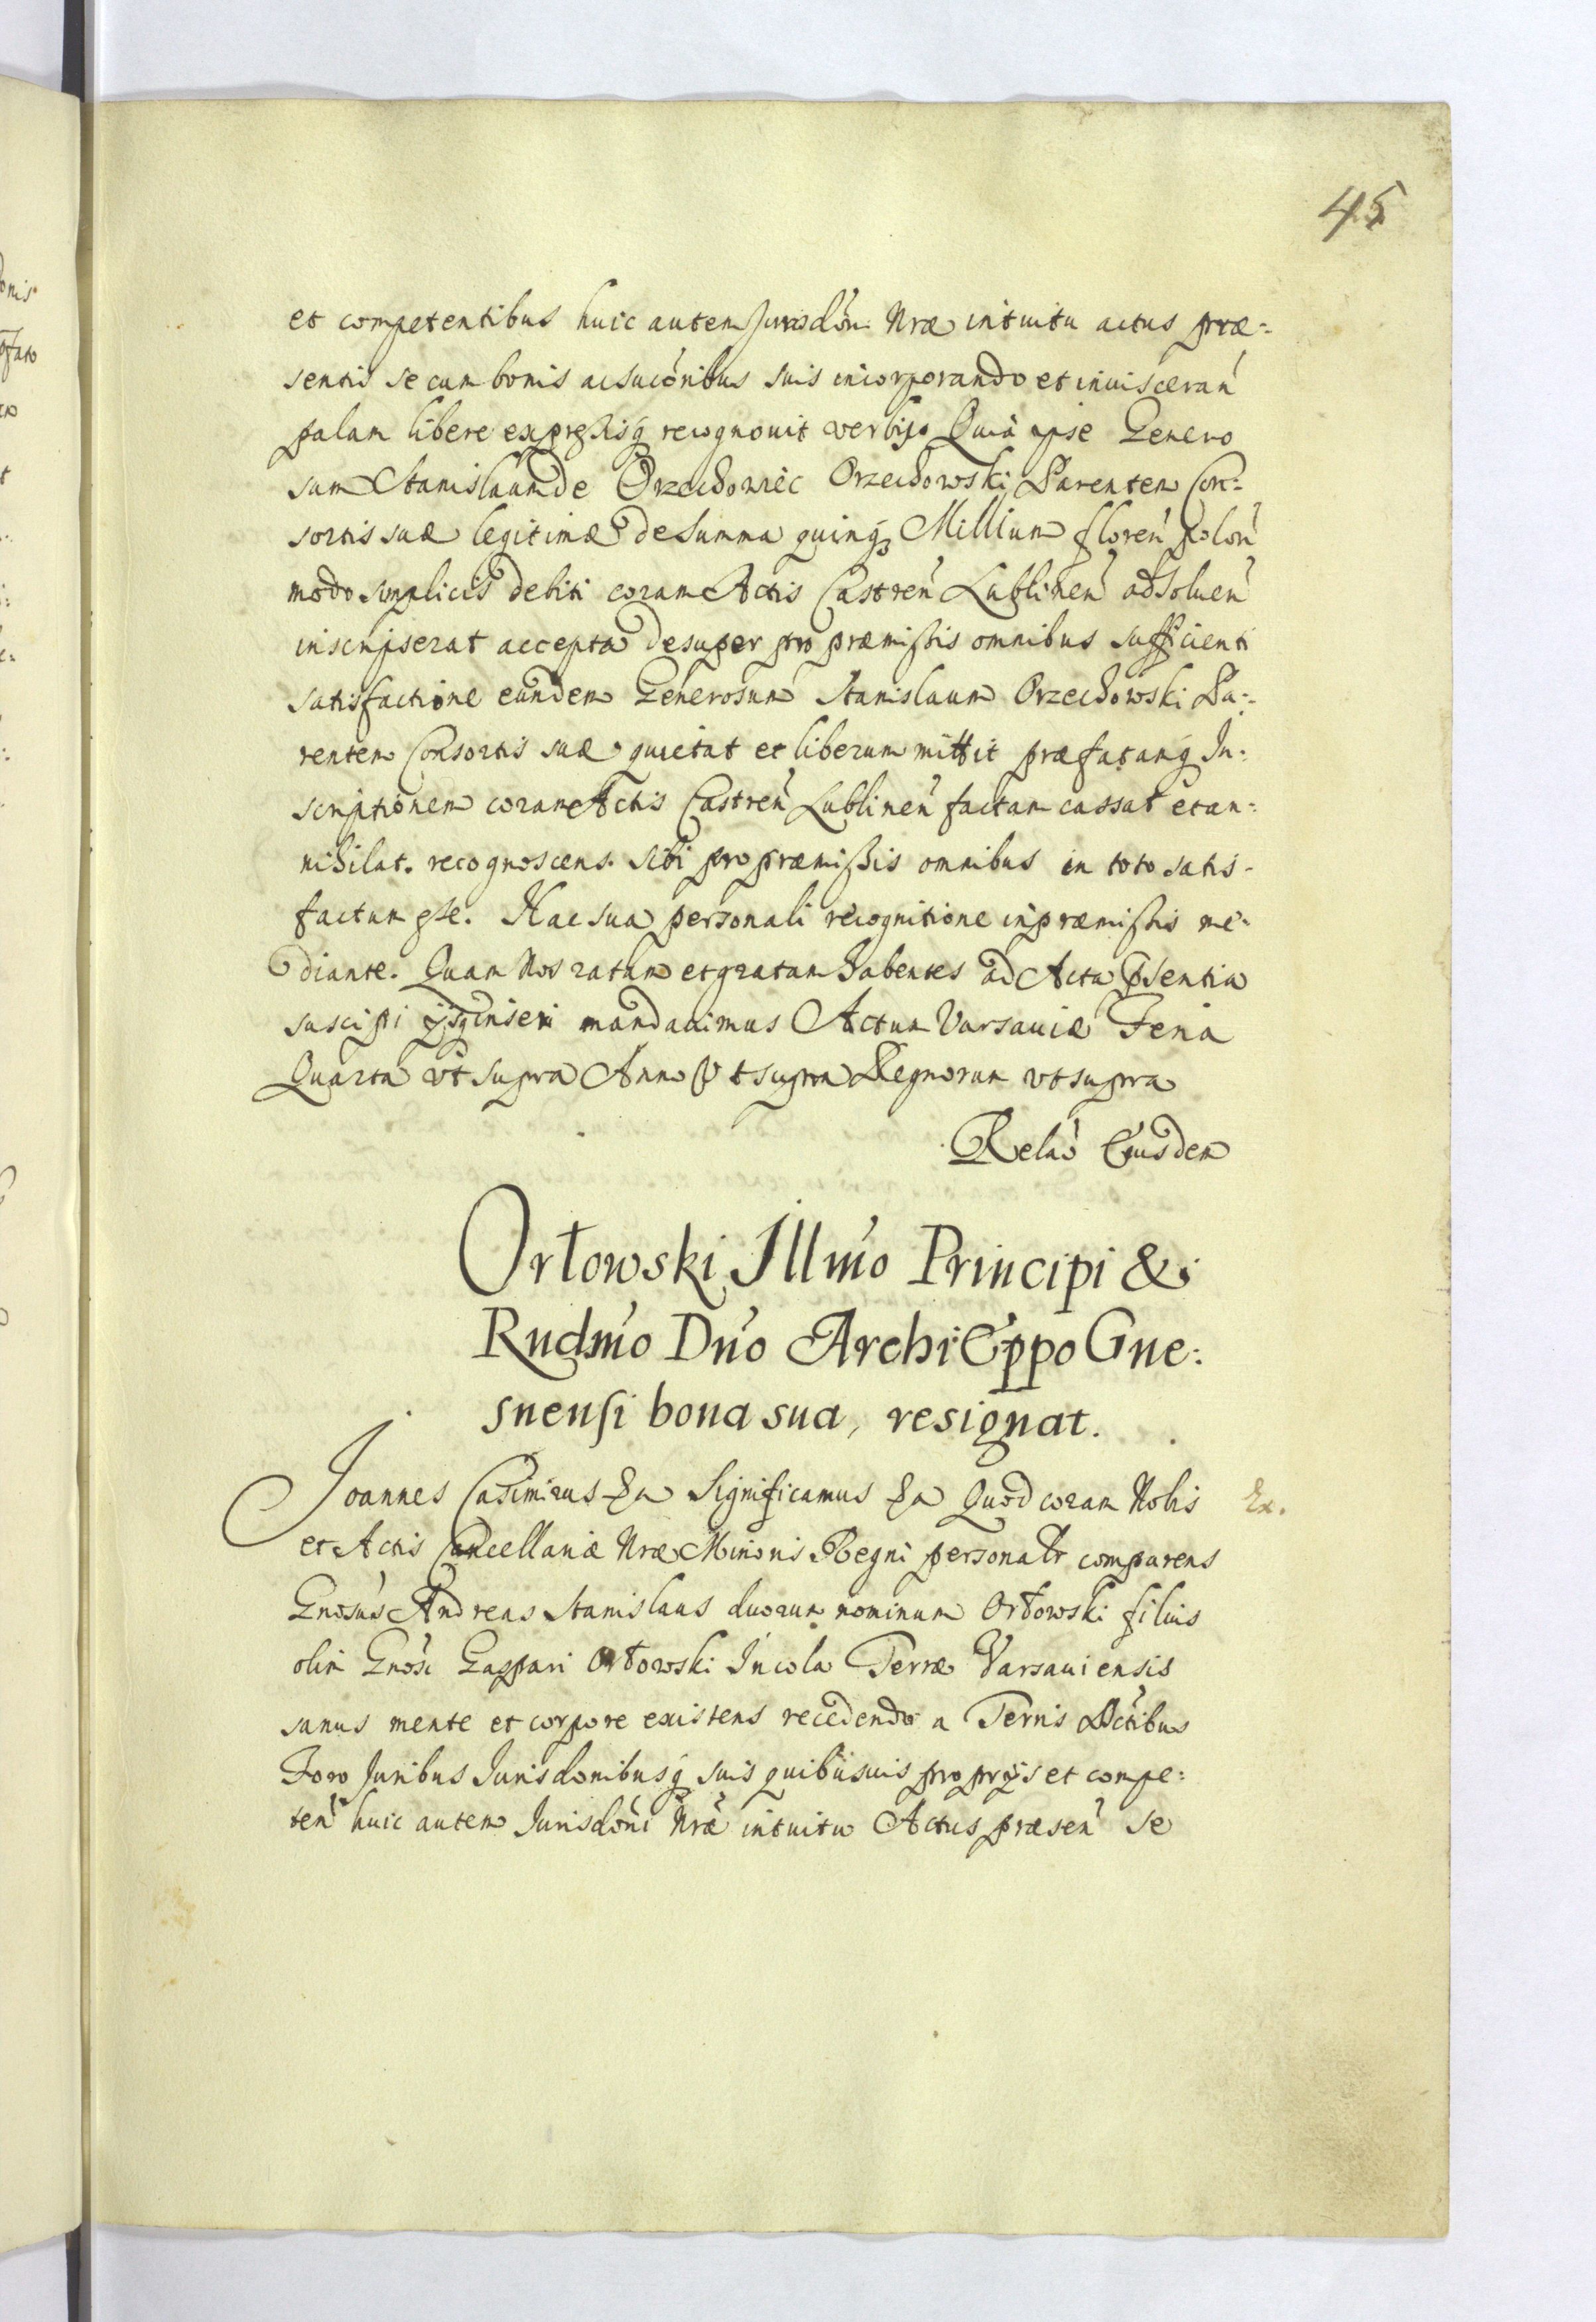 45
et competentibus huic autem Jurisdõni Nræ intuitu actus præ=
sentis se cum bonis ac sucõribus suis incorporando et inuisceran̄
palam libere expressisq́ recognouit verbis. Quià ipse Genero
sum Stanislaum de Orzechowiec Orzechowski Parentem Con=
sortis suæ legitimæ de Summa quinq́ Millium floren̄ polon̄
modo simplicis debiti coram Actis Castren̄ Lublinen̄ adsoluen̄
inscripserat accepta desuper pro præmissis omnibus sufficienti
satisfactione eundem Generosum Stanislaum Orzechowski Pa=
rentem Consortis suæ quietat et liberum mittit præfatamq́ In=
scriptionem coram Actis Castren̄ Lublinen̄ factam cassat et an=
nihilat. recognoscens. sibi pro præmissis omnibus in toto satis-
factum esse. Hac sua personali recognitione in præmissis me-
diante. Quam Nos ratam et gratam habentes ad Acta pñsentia
suscipi ijsq́ inseri mandauimus Actum Varsauiæ Feria
Quarta vt supra Anno Vt supra Regnorum vt supra
Relaõ Eiusdem
Orłowski Illm̃o Principi &
Rndm̃o Dño ArchiEppo Gne:
snensi bona sua, resignat.
Joannes Casimirus &a Significamus &a Quod coram Nobis
Ex.
et Actis Cancellariæ Nræ Minoris Regni personalr comparens
Gnõsus Andreas Stanislaus duorum nominum Orłowski filius
olim Gnõsi Gaspari Orłowski Incola Terræ Varsauiensis
sanus mente et corpore existens recedendo a Terris Dictibus
Foro Juribus Jurisdonibusq́ suis quibusuis proprijs et compe=
ten̄ huic autem Jurisdõni Nræ intuitu Actus præsen̄ se